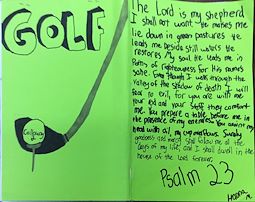 GOLF
Callaway
The Lord is my shepherd
I shall not want. He makes me
lie down in green pastures He
leads me beside still waters He
restores my soul. He leads me in
Paths of righteousness for His names
sake. Even though I walk through the
Valley of the shadow of death I will
fear no evil, for you are with me
Your rod and your staff they comfort
me. You prepare a table before me in
the presence of my enemies You anoint my
head with oil, my cup overflows. Surely
goodness and mercy shall follow me all the
days of my life, and I shall dwell in the
house of the Lord forever.
Psalm 23